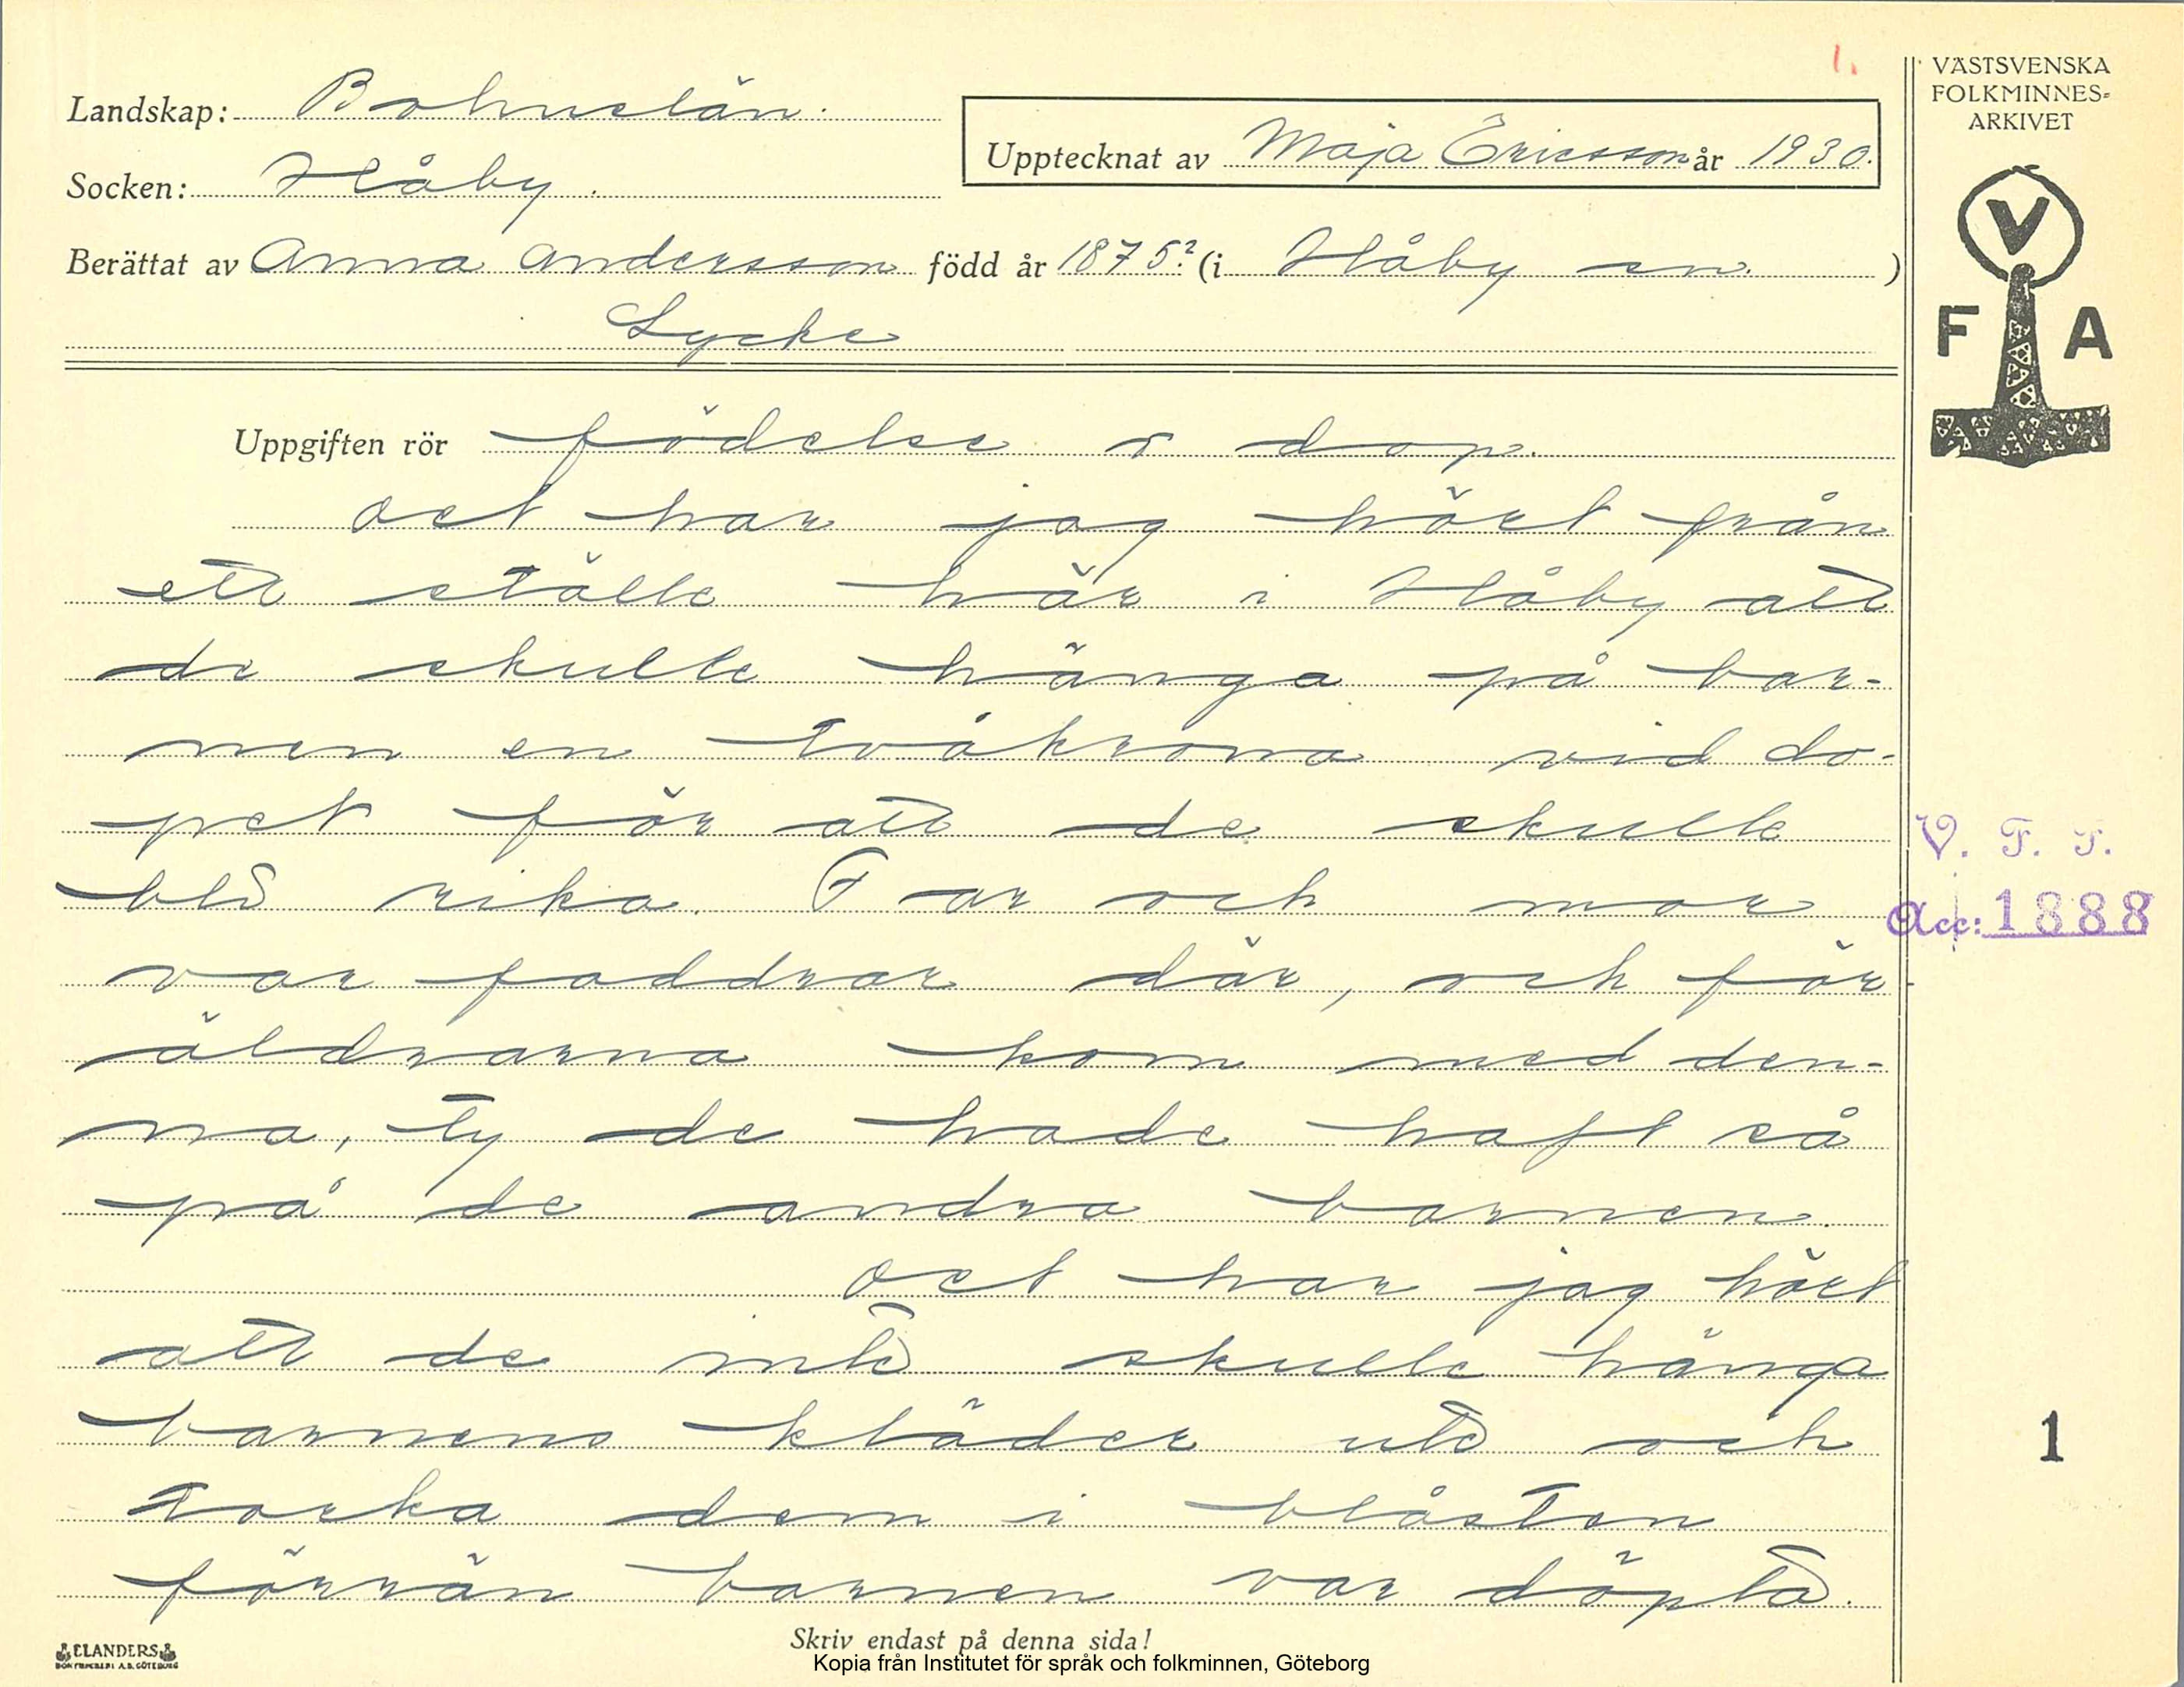 1.
VÄSTSVENSKA
FOLKMINNES-
ARKIVET
Landskap: Bohuslän.
Upptecknat av Maja Ericsson år 1930.
Socken: Håby.
Berättat av Anna Andersson född år 1875? (i Håby sn. )
Lycke
V
F A
Uppgiften rör födelse o dop.
Det har jag hört från
ett ställe här i Håby att
de skulle hänga på bar-
nen en tvåkrona vid do-
pet för att de skulle
bli rika. Far och mor
var faddrar där, och för-
äldrarna kom med den-
na, ty de hade haft så
på de andra barnen.
Det har jag hört
att de inte skulle hänga
barnens kläder ute och
torka dem i blåsten
förrän barnen var döpta.
V. F. F.
Acc: 1888
1
Skriv endast på denna sida!
ELANDERS
BOKTRYCKERI A.B. GÖTEBORG
Kopia från Institutet för språk och folkminnen, Göteborg